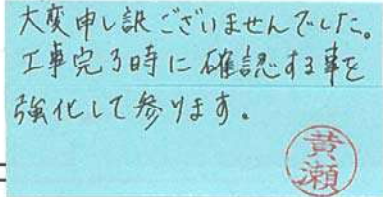 大変申し訳ございませんでした。
工事完了時に確認する事を
強化して参ります。
黄瀬